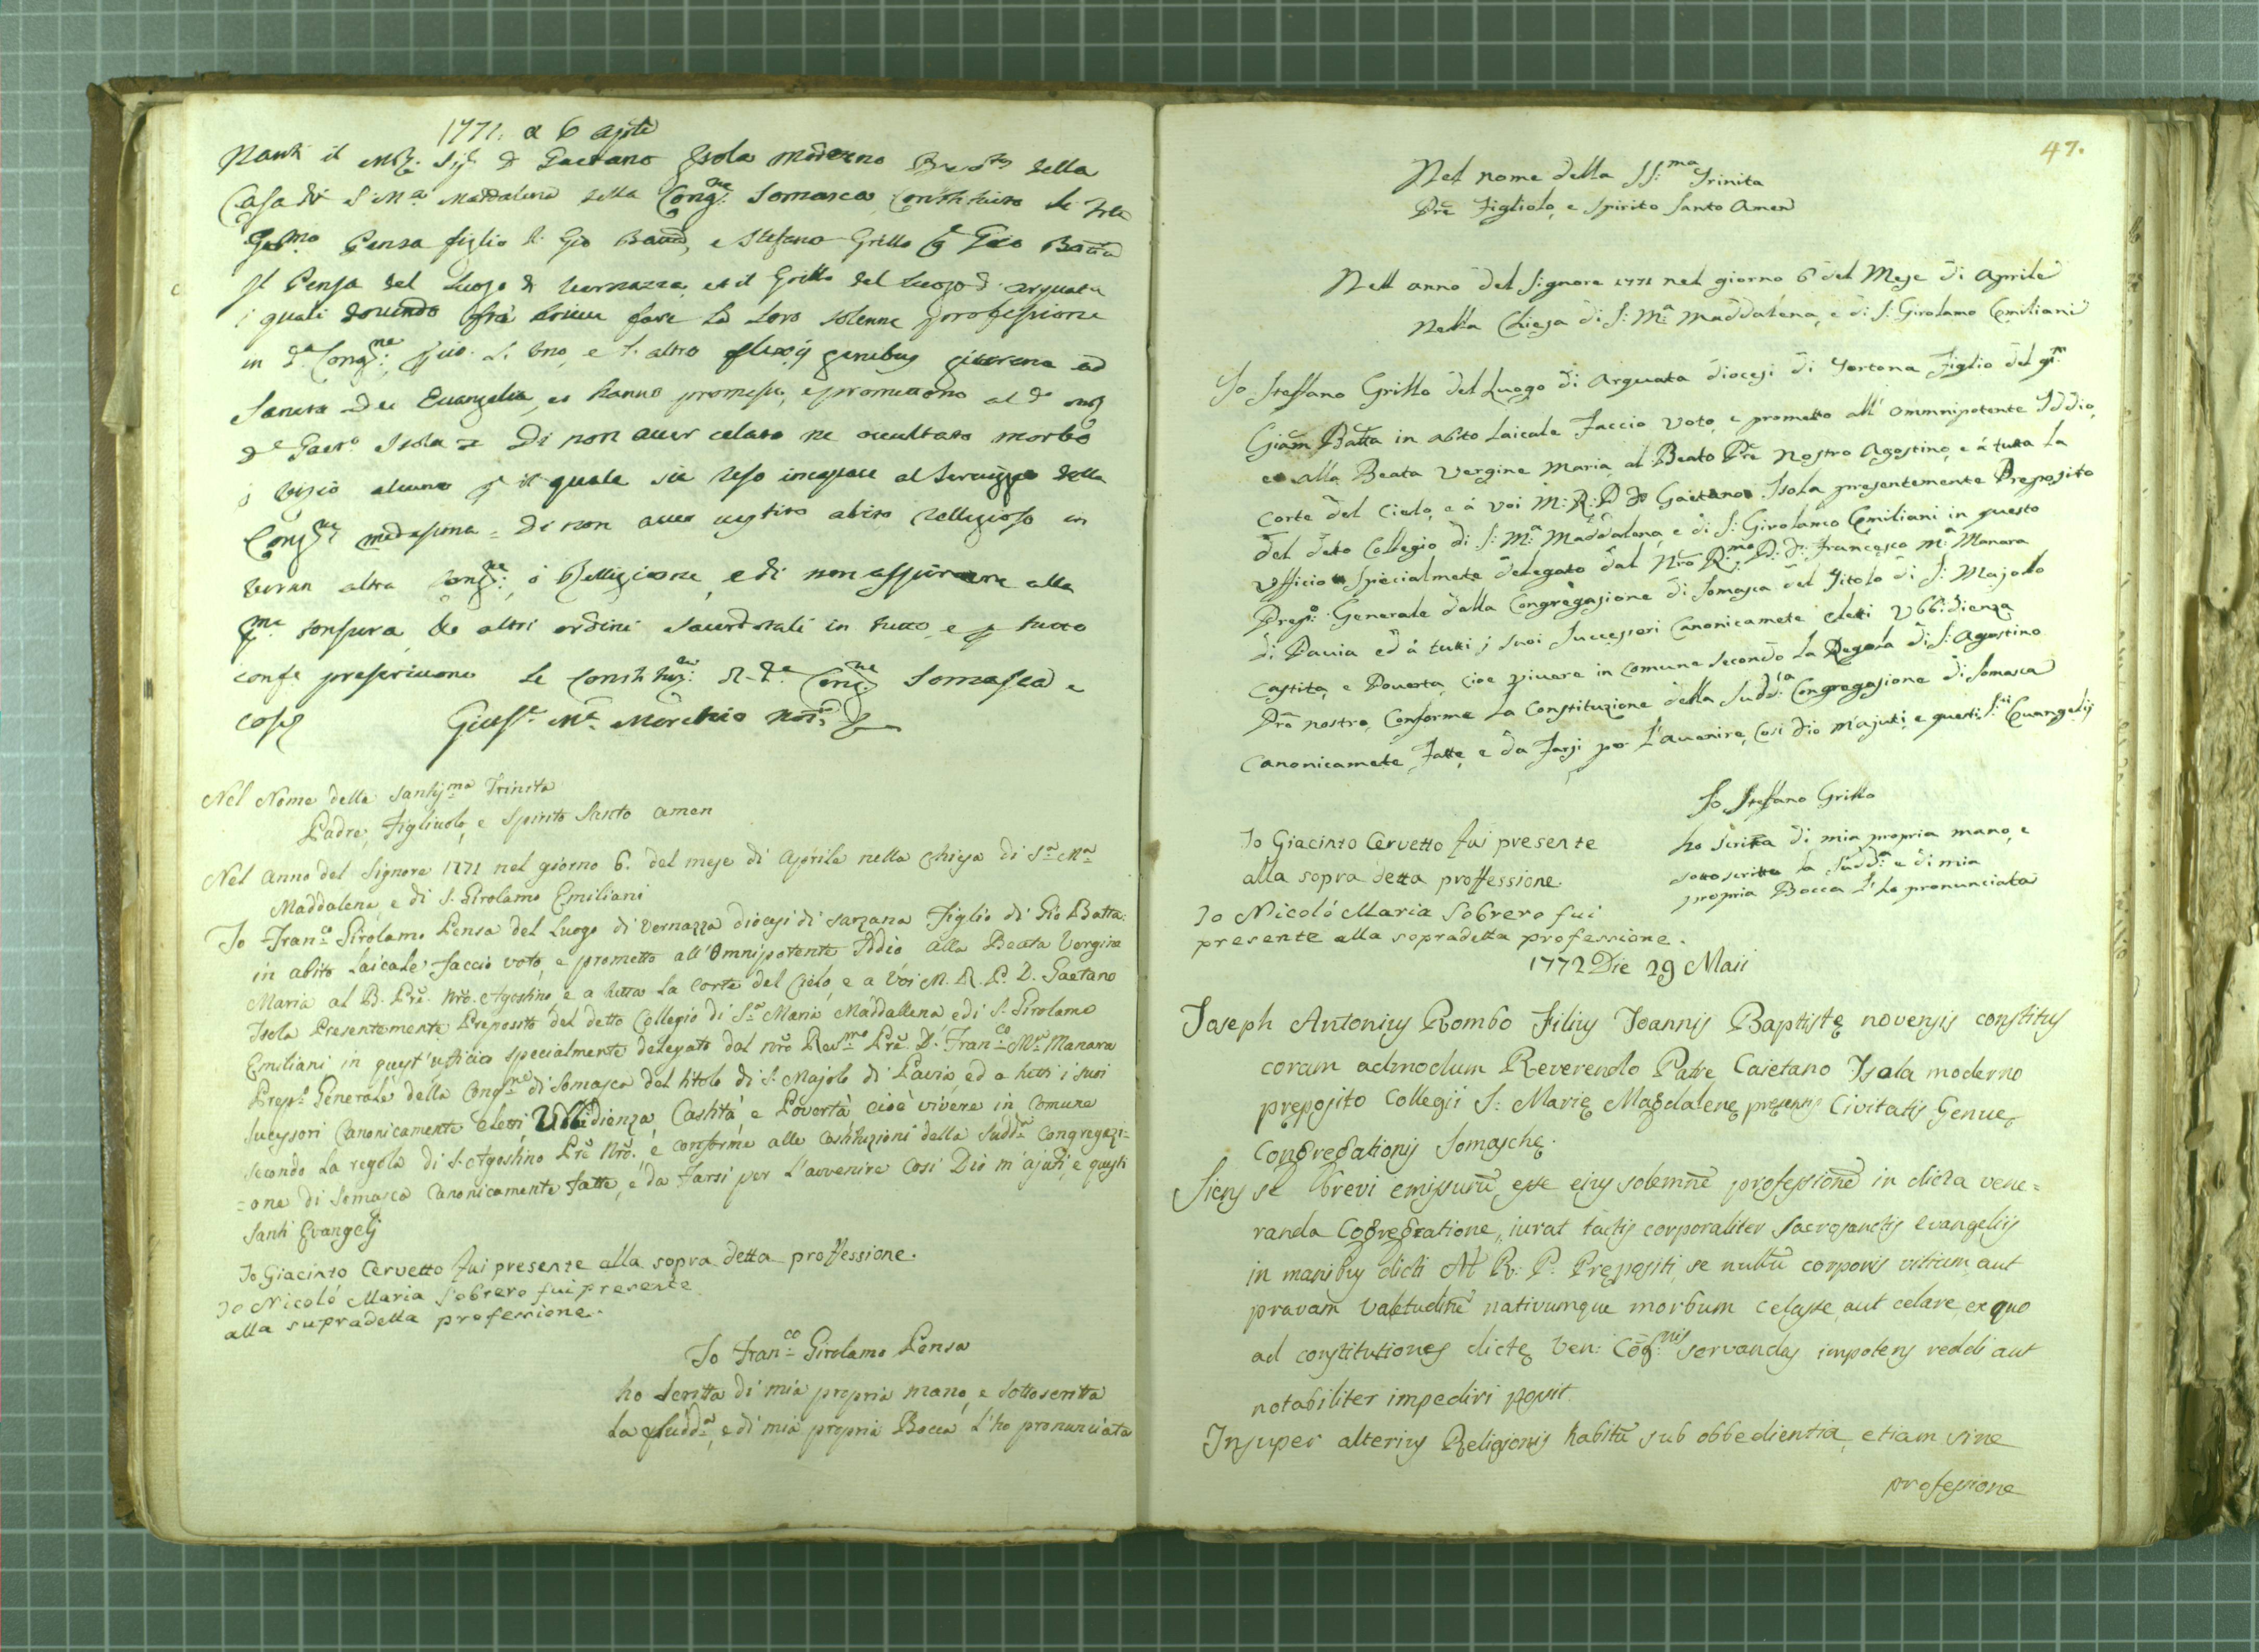 1771. a 6 aprile
Nanti il M. Sig. D Gaetano Isola moderno della
Casa di S Ma Maddalena della Congne Somasca, Constituiti li
Gmo Pensa figlio di Gio Batta, e Stefano Grillo q Gio Batta
Il Pensa del Luogo di Vernazza, et il Grillo del Luogo d'Arquata
i quali dovendo frà breve fare la Loro solenne professione
in da Congne: L'uno, e l'altro flexis genibus giurano ad
Sancta Dei Evangelia, et hanno promesso, e promettono al do
De Gaeto Isola = Di non aver celato ne occultato morbo
o vizio alcuno p il quale sia reso incapace al Servizio della
Congne medesima = Di non aver vestito abito Relligioso in
verun altra Congne: ò Relligione, e di non aspirare alla
pma tonsura, ed altri ordini sacerdotali in tutto, e p tutto
conf.e prescrivono le Constituzni: di da Congne Somasca e
così Giusе Ma Morchio Notº
Nel Nome della Santisma Trinita
Padre, Figliuolo, e Spirito Santo amen
Nel Anno del Signore 1771 nel giorno 6. del mese di Aprile nella Chiesa di Sa Ma
Maddalena, e di S. Girolamo Emiliani
Io Franco Girolamo Pensa del Luogo di Vernazza diocesi di Sarzana Figlio di Gio Batta:
in abito Laicale faccio voto, e prometto all'Omnipotente Iddio alla Beata Vergine
Maria al B. Prē. Nrō. Agostino, e a tutta La Corte del Cielo, e a Voi M. R. P. D. Gaetano
Isola Presentemente Preposito del detto Collegio di Sa Maria Maddallena e di S. Girolamo
Emiliani in quest'ufficio specialmente delegato dal nrō Revmo Prē. D. Franco Ma Manara
Prepo Generale della Congne di Somasca del titolo di S. Majolo di Pavia, ed a tutti i suoi
Sucessori Canonicamente eletti, Ubbidienza, Castità, e Povertà cioè vivere in comune
secondo La regola di S. Agostino Prē Nrō., e conforme alle Costituzioni della Sudda Congregazi=
=one di Somasca Canonicamente fatte, e da Farsi per L'avvenire Così Dio m'ajuti, e questi
Santi Evangelj
Io Giacinto Cervetto fui presente alla sopra detta proffessione.
Io Nicoló Maria Sobrero fui presente
alla supradetta professione.
Io Franco Girolamo Pensa
ho scritta di mia propria mano, e sottoscritta
La Sudda, e di mia propria Bocca L'ho pronunciata
47.
Nel nome della SS:ma Trinita
Prē Figliolo, e Spirito Santo Amen
Nell anno del Signore 1771 nel giorno 6 del Mese di Aprile
Nella Chiesa di S: Ma: Maddalena, e di S: Girolamo Emiliani
Io Steffano Grillo del Luogo di Arquata diocesi di Tortona Figlio del qm
Giam Batta in abito Laicale Faccio Voto, e prometto all' Ommnipotente Iddio,
e alla Beata Vergine Maria, al Beato Prē Nostro Agostino, e á tutta La
Corte del Cielo, e á Voi M: R: P D Gaetano Isola presentemente Preposito
del deto Collegio di S: Ma: Maddalena, e di S: Girolamo Emiliani in questo
Vfficio Specialmēte delegato dal Nrō Rmo P. D. Francesco Ma Manara
Prepo: Generale dalla Congregazione di Somasca del Titolo di S: Majolo
di Pavia ed á tutti i suoi Successori Canonicamēte eletti Vbbidienza
Castita, e Poverta, Cioe vivere in Comune Secondo La Regola di S: Agostino
Prē nostro, Conforme La Constituzione della Suddta Congregazione di Somasca
Canonicamēte Fatte, e da Farsi per L'avenire, Così Dio m'ajuti, e questi S:ti Evangelij
Io Steffano Grillo
ho scritta di mia propria mano, e
sottoscritta la Sudda: e di mia
propria Bocca l'ho pronunciata
Io Giacinto Cervetto fui presente
alla sopra detta proffessione.
Io Nicoló Maria Sobrero fui
presente alla sopradetta professione.
1772 Die 29 Maii
Joseph Antonius Rombo Filius Joannis Baptistę novensis constitus
coram admodum Reverendo Patre Caietano Isola moderno
pręposito Collegii S: Marię Magdalenę pręsentis Civitatis Genuę,
Congregationis Somaschę.
Siens se brevi emissurū esse ejus solemnē professionē in dicta vene=
randa Cogregatione, iurat tactis corporaliter Sacrosanctis Evangeliis
in manibus dicti M R: P: Pręposįti, se nullū corporis vitium, aut
pravam valetudinē nativumque morbum celasse, aut celare, ex quo
ad constitutiones dictę Ven: Cōg:nis servandas impotens reddi aut
notabiliter impediri possit
Insuper alterius Religionis habitū sub obbedientia, etiam sine
professione